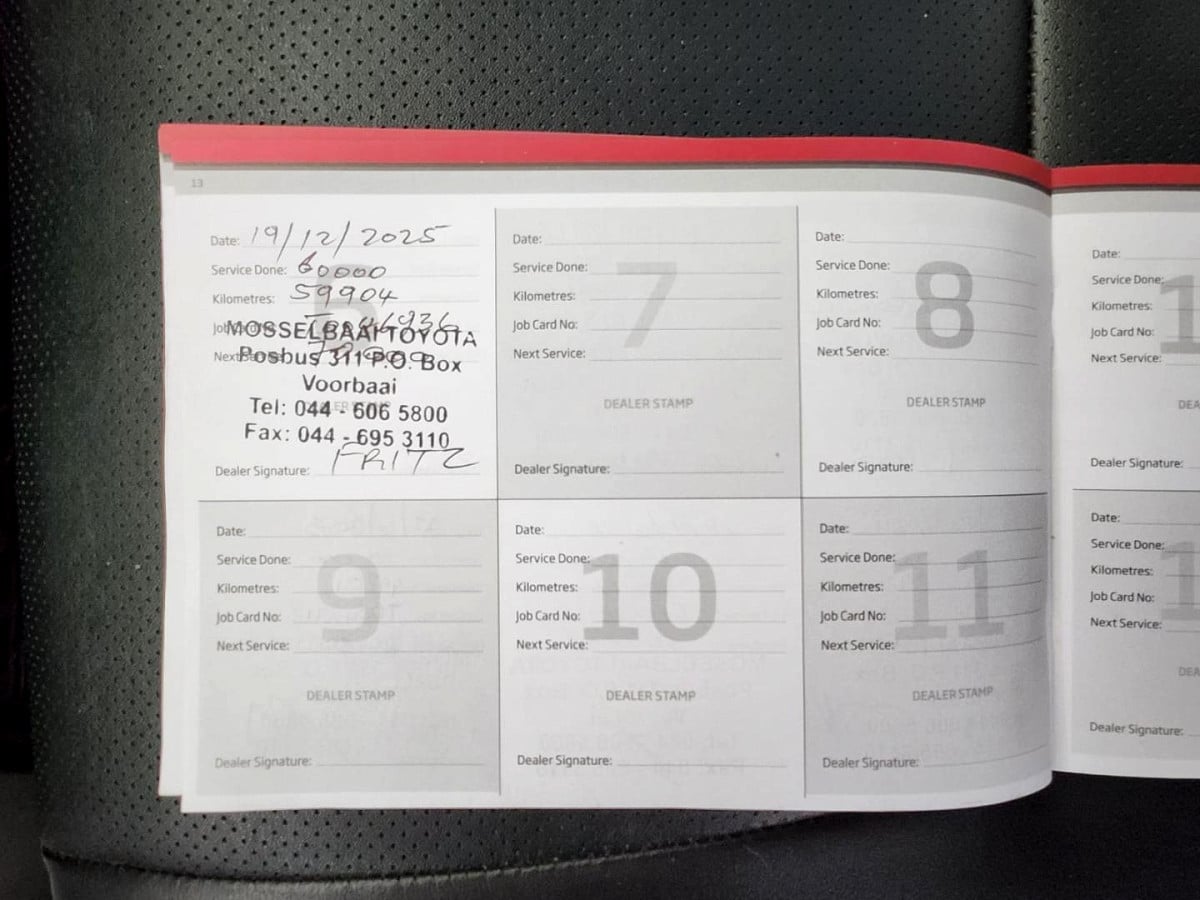 13
Date: 19/12/2025
Service Done: 60000
Kilometres: 59904
MOSSELBAAI TOYOTA
Posbus 311 P.O. Box
Voorbaai
Tel: 044 - 606 5800
Fax: 044 - 695 3110
Dealer Signature: FRITZ
7
Date:
Service Done:
Kilometres:
Job Card No:
Next Service:
DEALER STAMP
Dealer Signature:
8
Date:
Service Done:
Kilometres:
Job Card No:
Next Service:
DEALER STAMP
Dealer Signature:
Date:
Service Done:
Kilometres:
Job Card No:
Next Service:
Dealer Signature:
9
Date:
Service Done:
Kilometres:
Job Card No:
Next Service:
DEALER STAMP
Dealer Signature:
10
Date:
Service Done:
Kilometres:
Job Card No:
Next Service:
DEALER STAMP
Dealer Signature:
11
Date:
Service Done:
Kilometres:
Job Card No:
Next Service:
DEALER STAMP
Dealer Signature:
Date:
Service Done:
Kilometres:
Job Card No:
Next Service:
Dealer Signature: